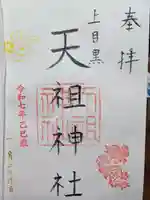 奉拝
上目黒
天祖神社
令和七年乙巳歳